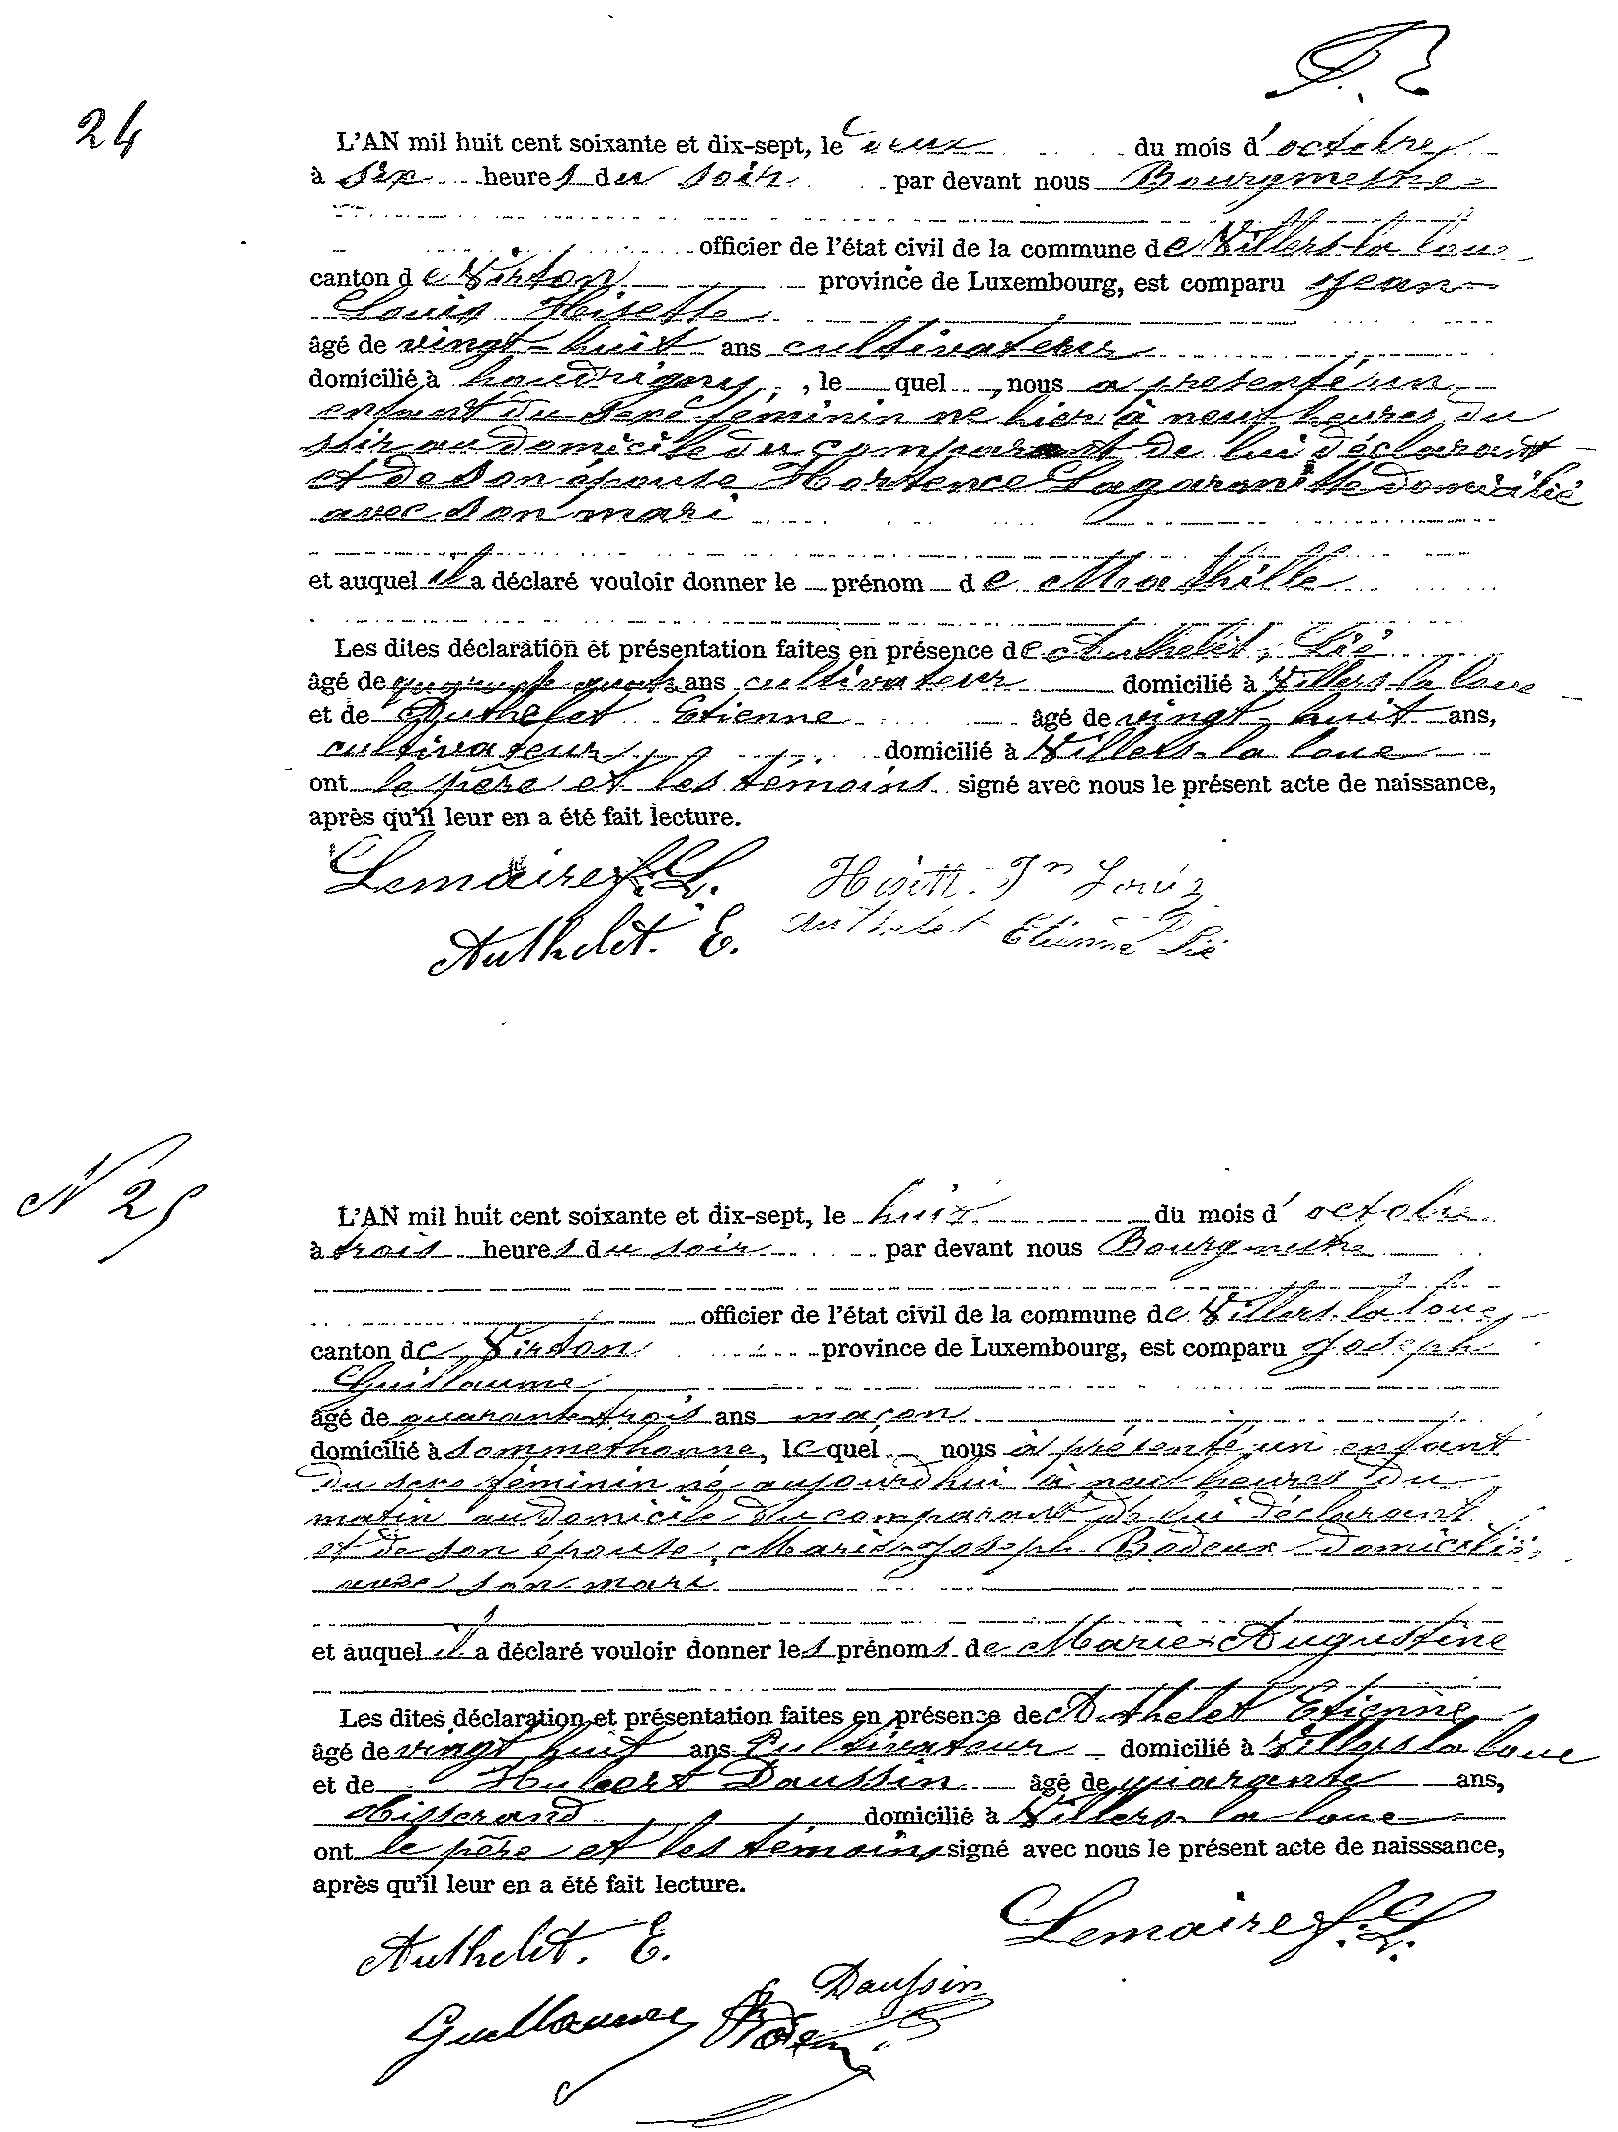 24
L'AN mil huit cent soixante et dix-sept, le deux du mois d'octobre
à six heures du soir par devant nous Bourgmestre
officier de l'état civil de la commune de Villers-la-loue
canton de Virton province de Luxembourg, est comparu Jean
Louis Hisette
âgé de vingt-huit ans cultivateur
domicilié à houdrigny, le quel, nous a présenté un
enfant du sexe féminin né hier à neuf heures du
soir au domicile du comparant de lui déclarant
et de son épouse Hortence Lagaronitte domicilié
avec son mari
et auquel il a déclaré vouloir donner le prénom de Mathilte
Les dites déclaration et présentation faites en présence de Authelet, Lié
âgé de quarante quatre ans cultivateur domicilié à Villers-la loue
et de Authelet Etienne âgé de vingt huit ans,
cultivateur domicilié à Villers-la loue
ont le père et les témoins signé avec nous le présent acte de naissance,
après qu'il leur en a été fait lecture.
Lemaire J. L. Hisette Jn Louis
Authelet. E. Authelet Etienne Lié
N 25
L'AN mil huit cent soixante et dix-sept, le huit du mois d'octobre
à trois heures du soir par devant nous Bourgmestre
officier de l'état civil de la commune de Villers-la loue
canton de Virton province de Luxembourg, est comparu Joseph
Guillaume
âgé de quarante trois ans maçon
domicilié à sommethonne, le quel nous a présenté un enfant
du sexe féminin né aujourd'hui à neuf heures du
matin au domicile du comparant de lui déclarant
et de son épouse Marie-Joseph Bodeux domicilié
avec son mari
et auquel il a déclaré vouloir donner les prénoms de Marie-Augustine
Les dites déclaration et présentation faites en présence de Authelet Etienne
âgé de vingt huit ans Cultivateur domicilié à Villers la loue
et de Hubert Daussin âgé de quarante ans,
tisserand domicilié à Villers-la loue
ont le père et les témoins signé avec nous le présent acte de naisssance,
après qu'il leur en a été fait lecture.
Lemaire J. L.
Authelet. E.
Daussin
Guillaume